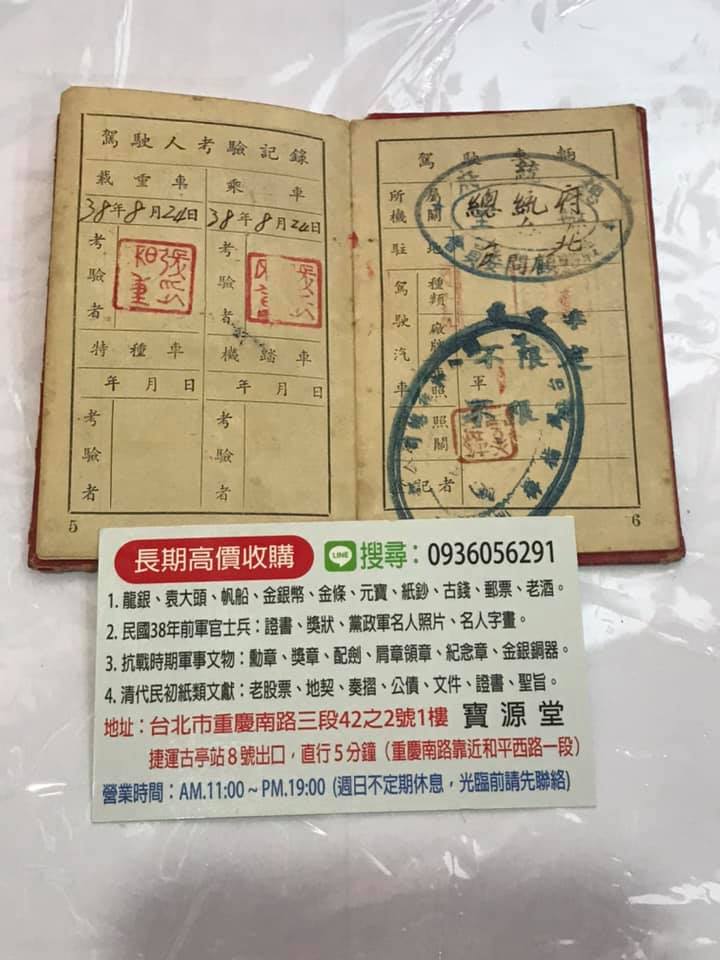 駕駛人考驗記錄
載重車 乘車
38年8月24日 38年8月24日
考驗者 考驗者
特種車 機踏車
年 月 日 年 月 日
考驗者 考驗者
5
駕駛車輛
所屬機關 總統府
駐地 台北
顧問
駕駛汽車 種類
廠牌
不限
軍
不限
登記者
6
長期高價收購 LINE 搜尋：0936056291
1. 龍銀、袁大頭、帆船、金銀幣、金條、元寶、紙鈔、古錢、郵票、老酒。
2. 民國38年前軍官士兵：證書、獎狀、黨政軍名人照片、名人字畫。
3. 抗戰時期軍事文物：勳章、獎章、配劍、肩章領章、紀念章、金銀銅器。
4. 清代民初紙類文獻：老股票、地契、奏摺、公債、文件、證書、聖旨。
地址：台北市重慶南路三段42之2號1樓 寶源堂
捷運古亭站8號出口，直行5分鐘（重慶南路靠近和平西路一段）
營業時間：AM.11:00 ~ PM.19:00 (週日不定期休息，光臨前請先聯絡)